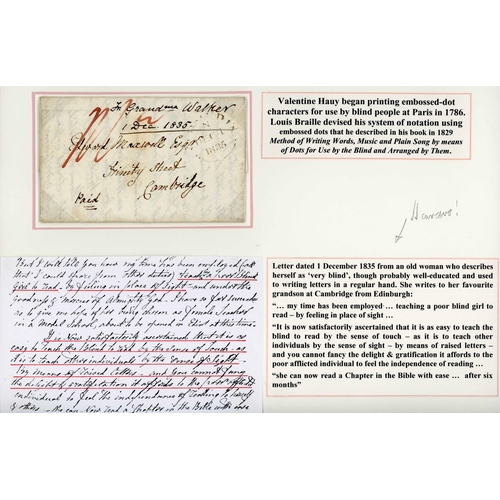 Fr Grandma Walker
1 Dec. 1835
Edward Maxwell Esqr
Trinity Street
Cambridge
Paid
1835
Valentine Hauy began printing embossed-dot
characters for use by blind people at Paris in 1786.
Louis Braille devised his system of notation using
embossed dots that he described in his book in 1829
Method of Writing Words, Music and Plain Song by means
of Dots for Use by the Blind and Arranged by Them.
But I could tell you how my time has been employed (all
that I could spare from other duties) Teaching a poor Blind
Girl to read, by feeling in place of sight - and under the
goodness & mercies of Almighty God. I have so far succeeded
as to give me hope of her being chosen as female Teacher
in a Model School, about to be opened in at this time.
It is now satisfactorily ascertained that it is as
easy to teach the Blind to read by the sense of touch - as
it is to teach other individuals by the sense of sight -
by means of raised letters - and you cannot fancy
the delight & gratification it affords to the poor afflicted
individual to feel the independence of reading
she can now read a Chapter in the Bible with ease
Letter dated 1 December 1835 from an old woman who describes
herself as ‘very blind’, though probably well-educated and used
to writing letters in a regular hand. She writes to her favourite
grandson at Cambridge from Edinburgh:
“… my time has been employed … teaching a poor blind girl to
read – by feeling in place of sight …
“It is now satisfactorily ascertained that it is as easy to teach the
blind to read by the sense of touch – as it is to teach other
individuals by the sense of sight – by means of raised letters –
and you cannot fancy the delight & gratification it affords to the
poor afflicted individual to feel the independence of reading …
“she can now read a Chapter in the Bible with ease … after six
months”